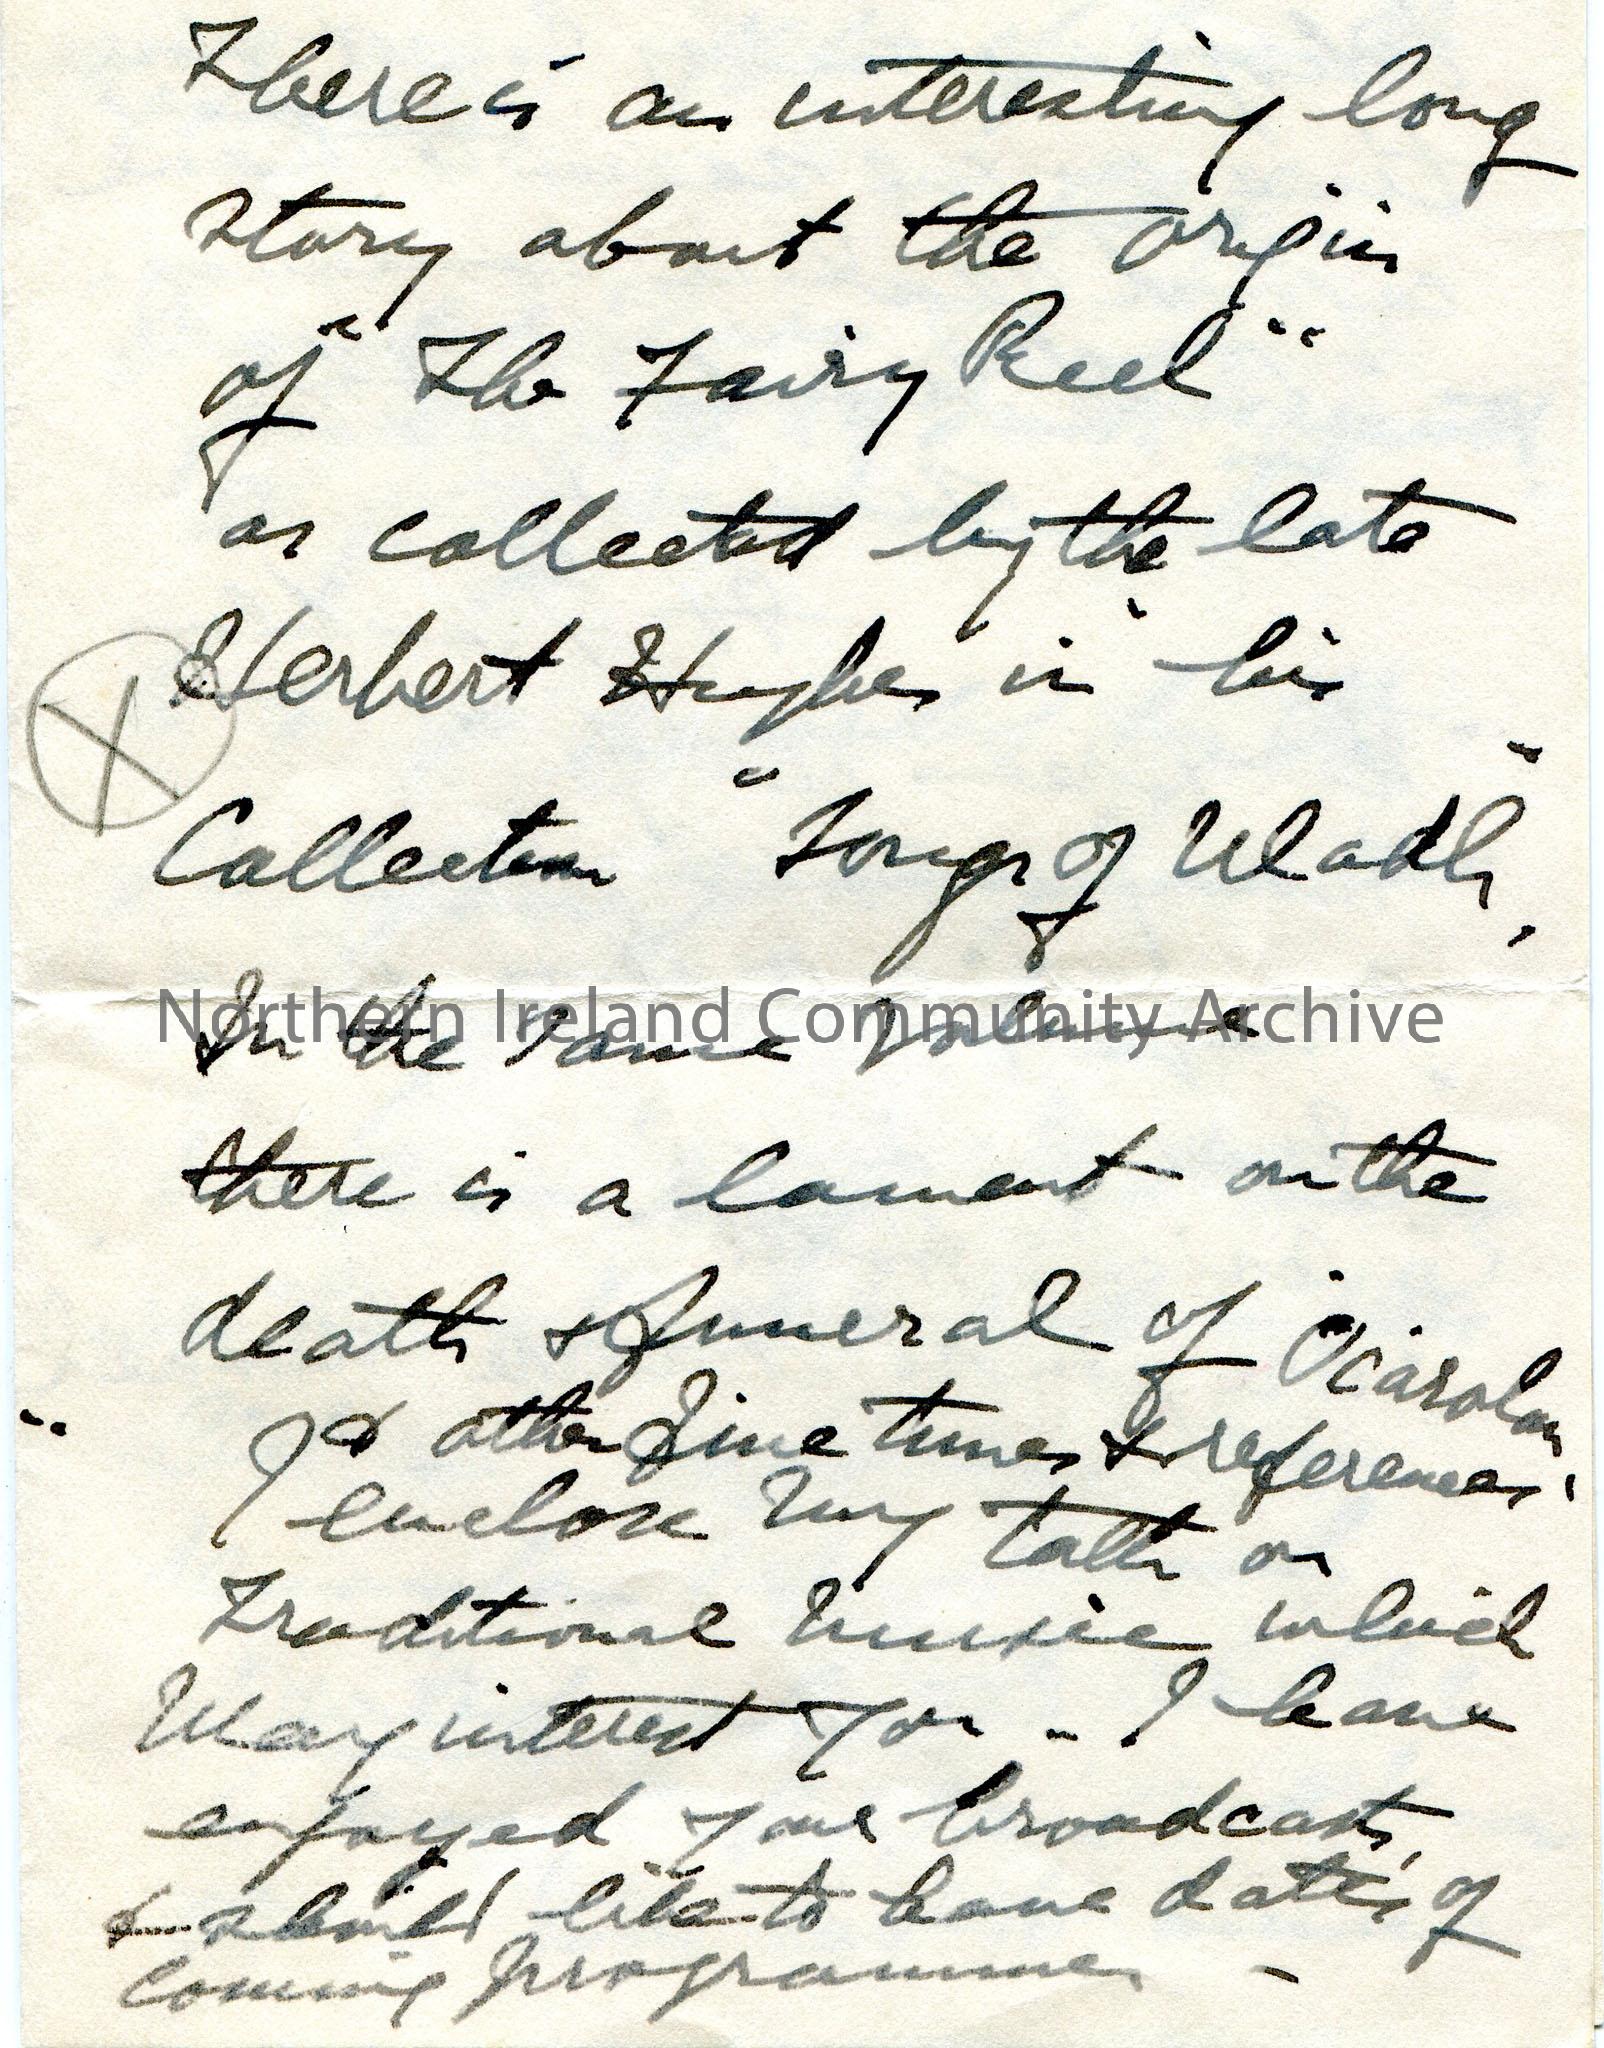 There is an interesting long
story about the origin
of "The Fairy Reel"
as collected by the late
Herbert Hughes in his
Collection "Songs of Uladh",
Northern Ireland Community Archive
In the same volume
there is a lament on the
death & funeral of O'Carolan
& other fine tunes & references.
I enclose my talk on
Traditional Music which
may interest you - I have
enjoyed your broadcasts,
& should like to have dates of
coming programmes -